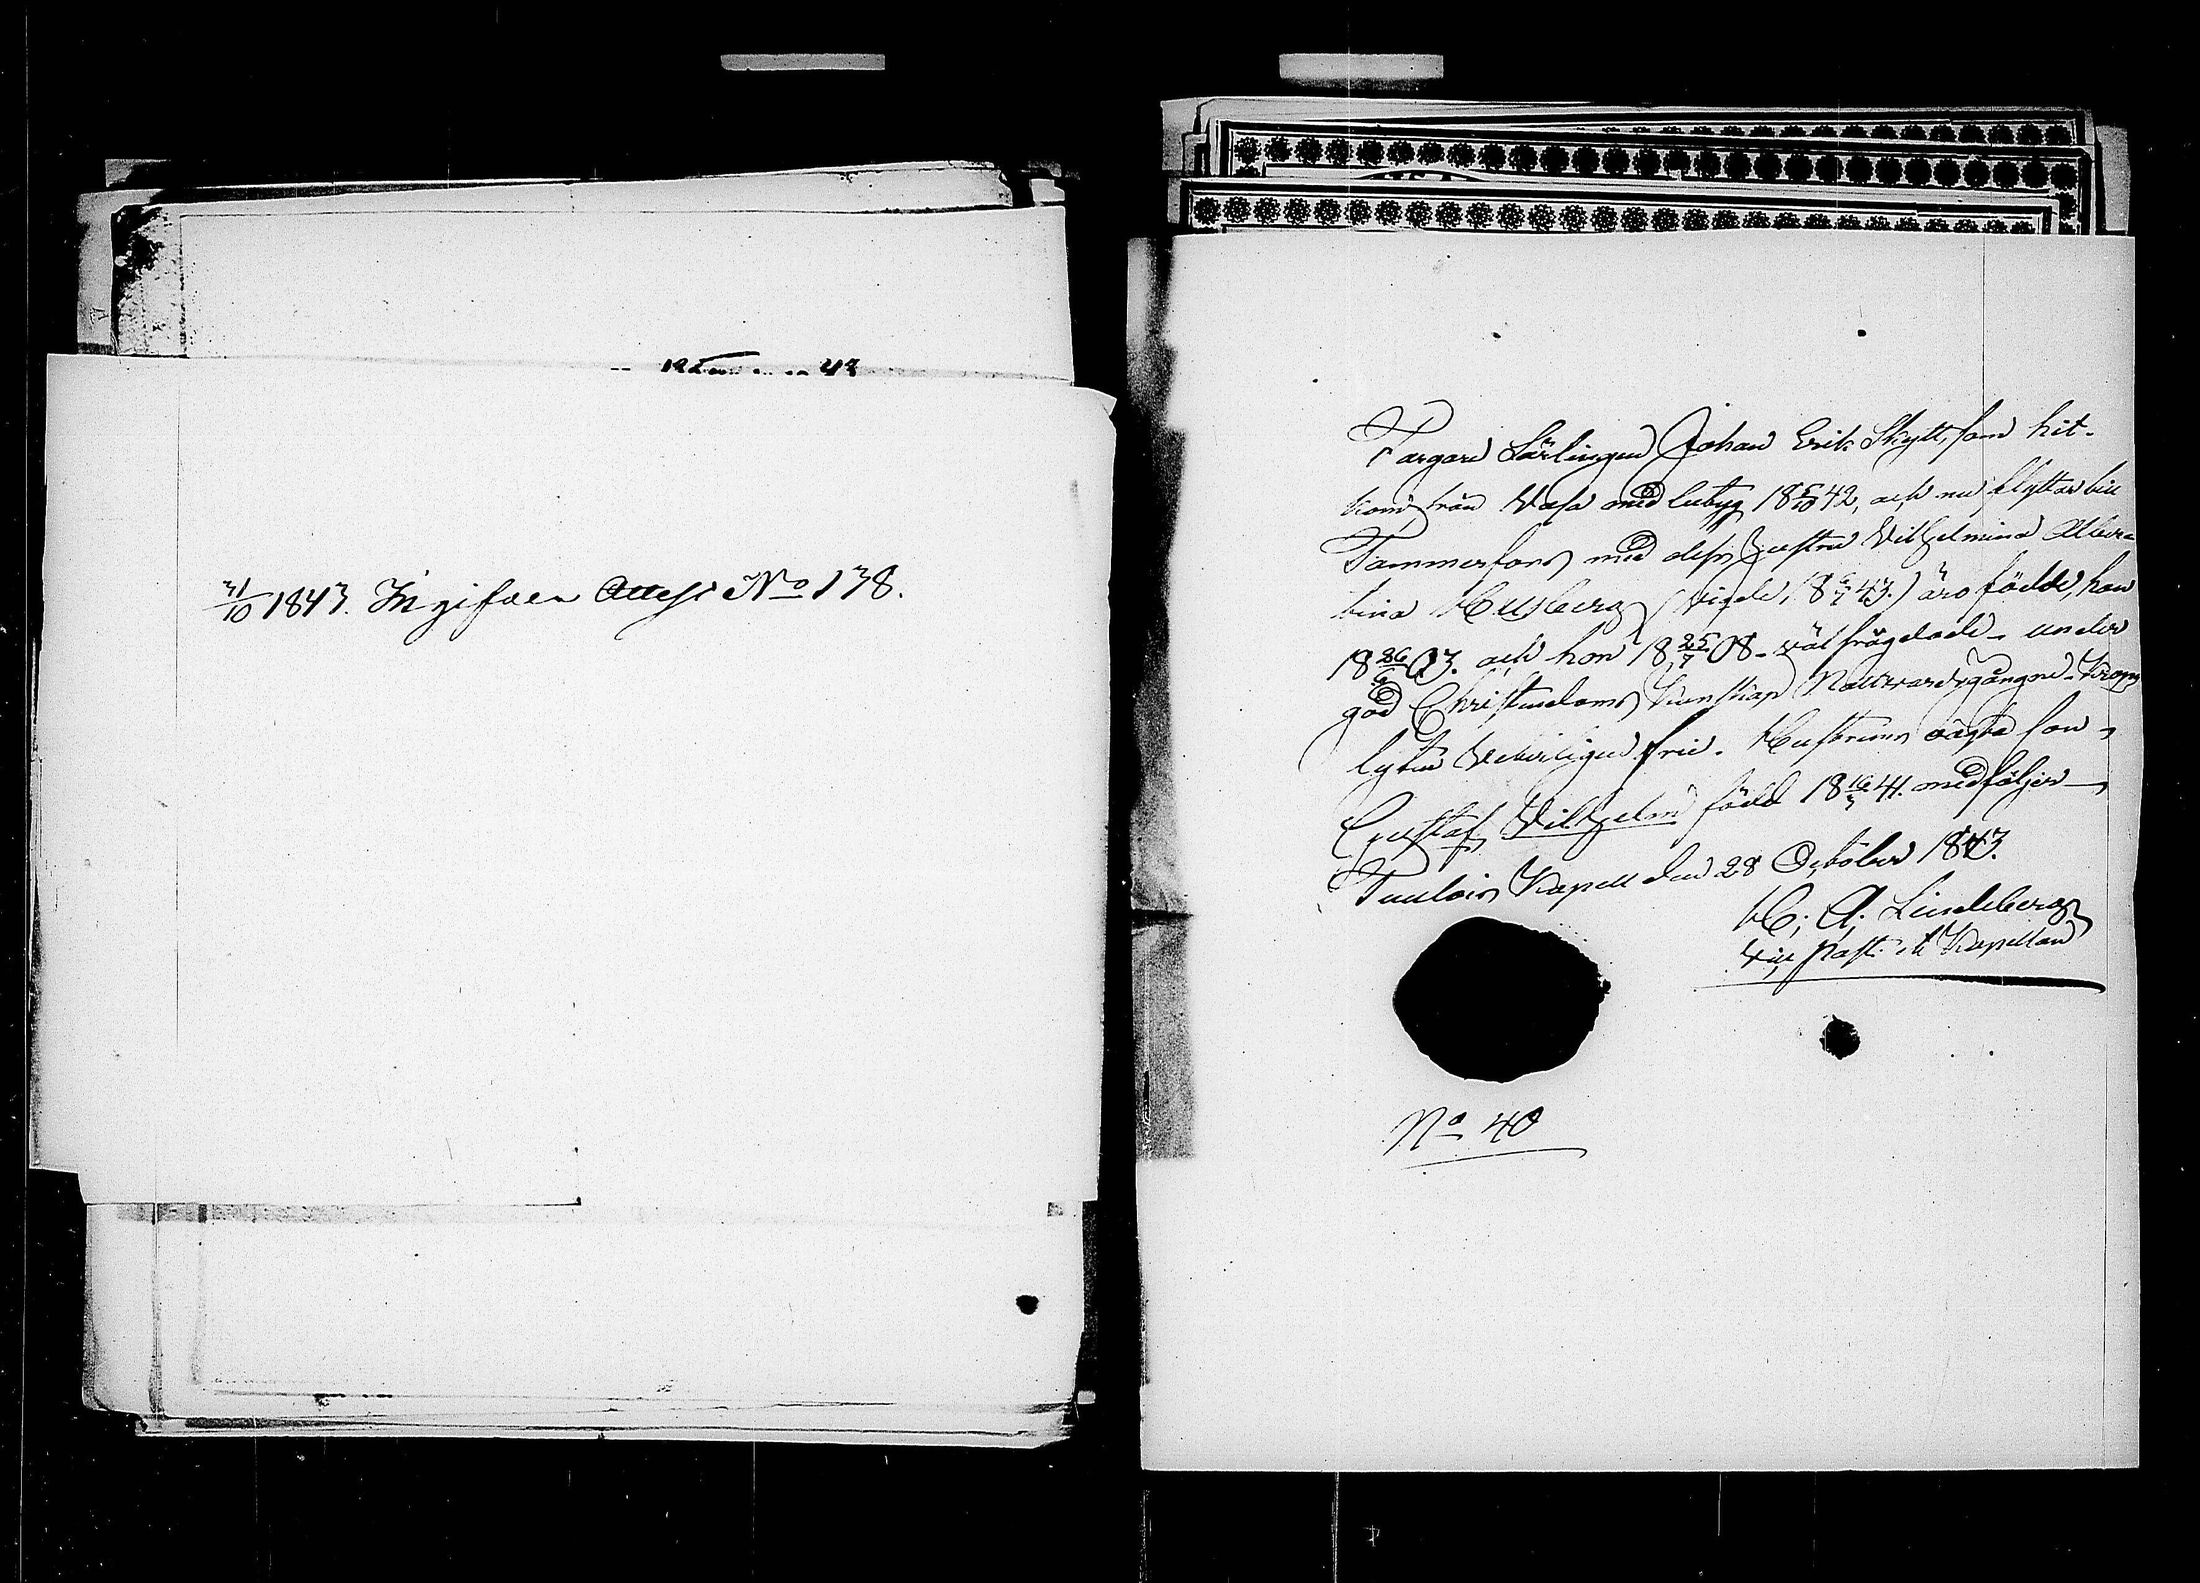 31/10 1843. Ingifven Attest No 138.
Färgare Lärlingen Johan Erik Skytt, som hit-
kom från Wasa med betyg 18 5/10 42, och nu flyttar till
Tammerfors med dess hustru Vilhelmina Alber-
tina Husberg (vigde, 18 6/7 43.) äro födde, han
18 26/6 03. och hon 18 25/7 08. välfrägdade. under
god Christendoms kunskap Nattvardsgångne.
lyten frie. Hustruns oägta son
Gustaf Vilhelm född 18 16/3 41. medföljer
Tuulois Kapell den 28 October 1843.
H: A: Lindeberg
vice Past. et Kapellan
No 40